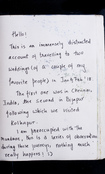 Hello!
This is an immensely distracted
account of travelling to two
weddings (of a couple of my
favorite people) in Jan & Feb '18
The first one was in Chennai,
India. The second in Bijapur
following which we visited
Kolhapur.
I am preoccupied with the
mundane, this is a series of observations
during these journeys, nothing much
really happens :)